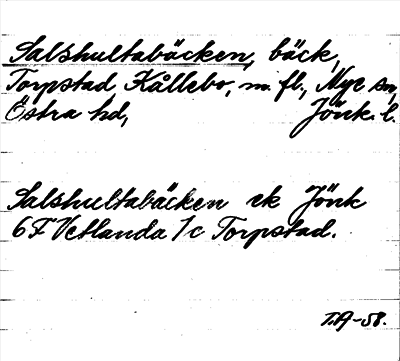 Salshultabäcken, bäck,
Torpstad Kållebo, m. fl., Nye sn,
Östra hd, Jönk. l.
Salshultabäcken ek Jönk
6F Vetlanda 1c Torpstad.
T.A-58.